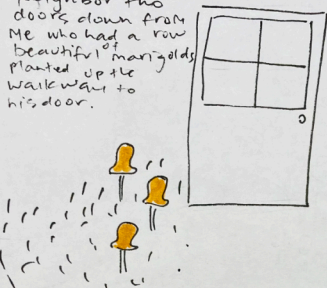 neighbor two
doors down from
me who had a row
beautiful of marigolds
planted up the
walkway to
his door.